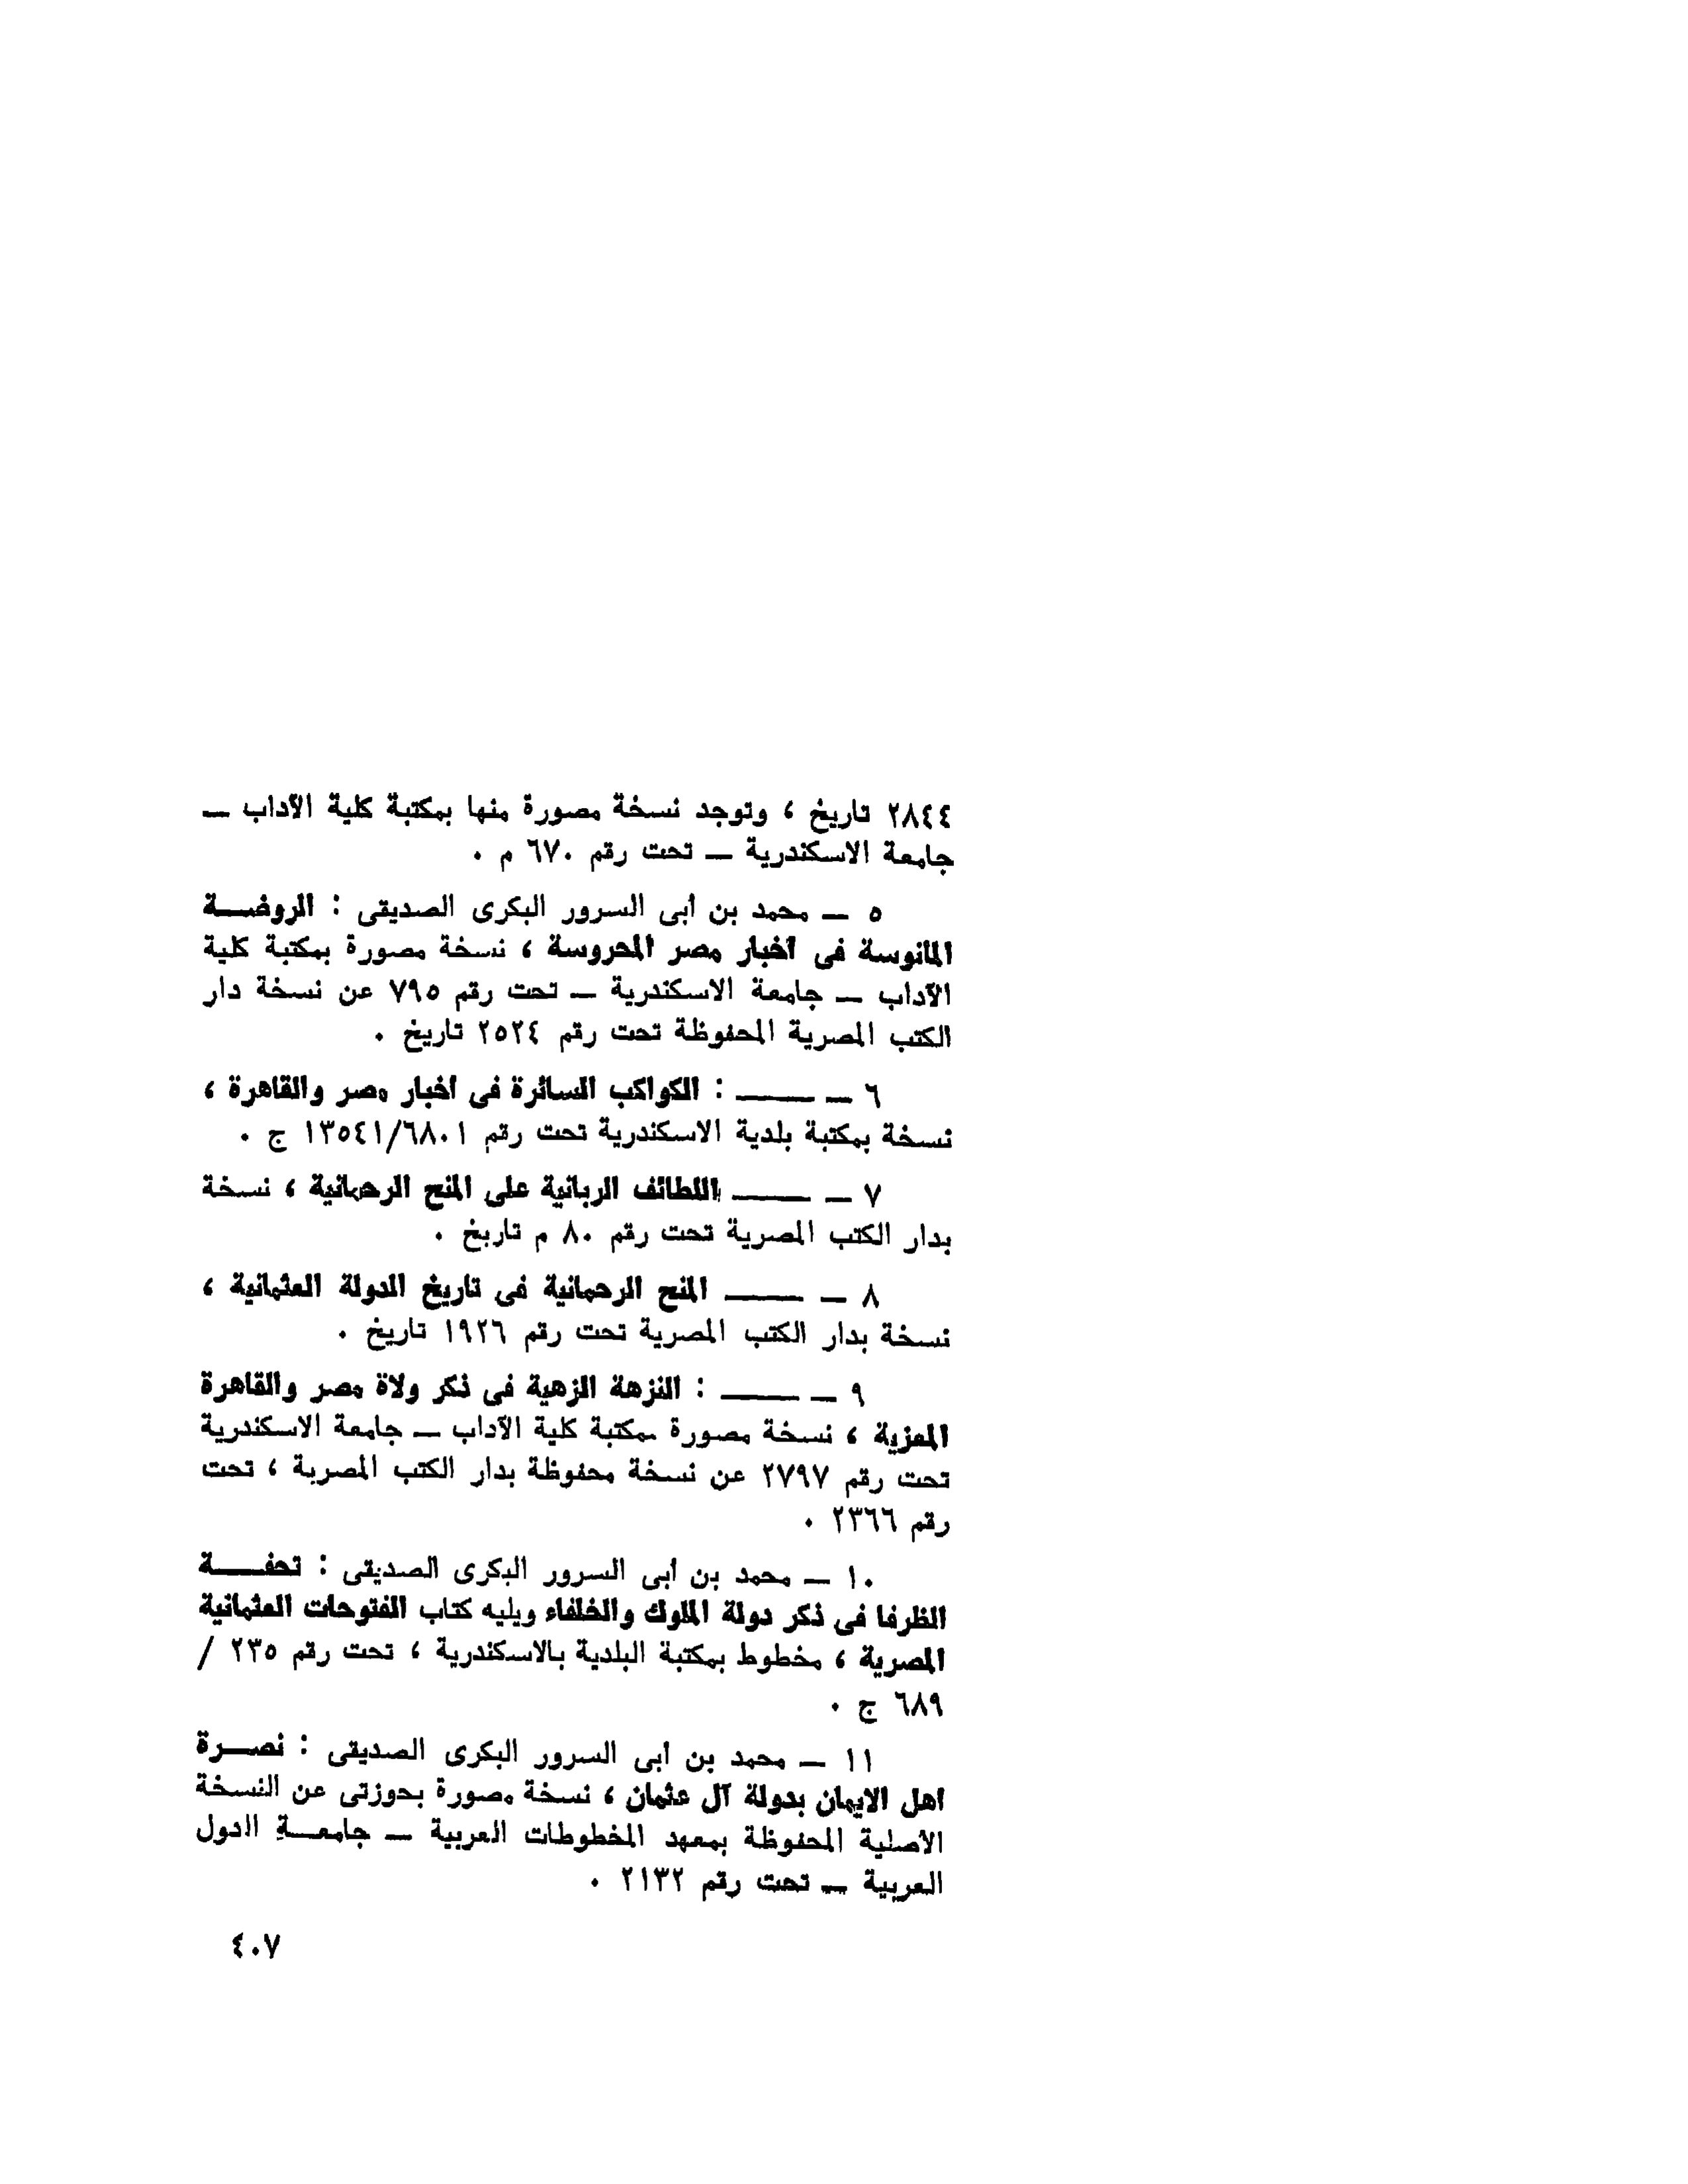 ٢٨٤٤ تاريخ ، وتوجد نسخة مصورة منها بمكتبة كلية الآداب —
جامعة الاسكندرية — تحت رقم ٦٧٠ م .
٥ — محمد بن أبى السرور البكرى الصديقى : الروضـــة
المانوسة فى أخبار مصر المحروسة ، نسخة مصورة بمكتبة كلية
الآداب — جامعة الاسكندرية — تحت رقم ٧٩٥ عن نسخة دار
الكتب المصرية المحفوظة تحت رقم ٢٥٢٤ تاريخ .
٦ — ——— : الكواكب السائرة فى أخبار مصر والقاهرة ،
نسخة بمكتبة بلدية الاسكندرية تحت رقم ١٣٥٤١/٦٨٠١ ج .
٧ — ——— اللطائف الربانية على المنح الرحمانية ، نسخة
بدار الكتب المصرية تحت رقم ٨٠ م تاريخ .
٨ — ——— المنح الرحمانية فى تاريخ الدولة العثمانية ،
نسخة بدار الكتب المصرية تحت رقم ١٩٢٦ تاريخ .
٩ — ——— : النزهة الزهية فى ذكر ولاة مصر والقاهرة
المعزية ، نسخة مصورة بمكتبة كلية الآداب — جامعة الاسكندرية
تحت رقم ٢٧٩٧ عن نسخة محفوظة بدار الكتب المصرية ، تحت
رقم ٢٣٦٦ .
١٠ — محمد بن أبى السرور البكرى الصديقى : تحفـــــة
الظرفا فى ذكر دولة الملوك والخلفاء ويليه كتاب الفتوحات العثمانية
المصرية ، مخطوط بمكتبة البلدية بالاسكندرية ، تحت رقم ٢٣٥ /
٦٨٩ ج .
١١ — محمد بن أبى السرور البكرى الصديقى : نصـــرة
أهل الايمان بدولة آل عثمان ، نسخة مصورة بحوزتى عن النسخة
الأصلية المحفوظة بمعهد المخطوطات العربية — جامعـــة الدول
العربية — تحت رقم ٢١٣٢ .
٤٠٧